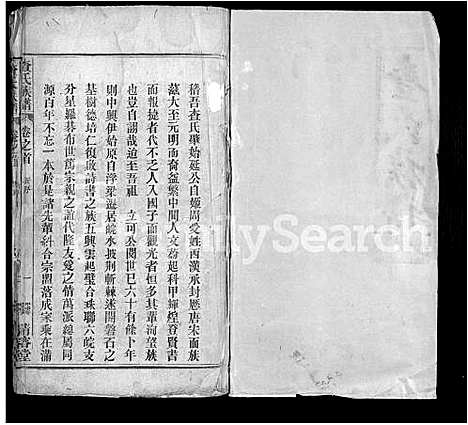 稽吾查氏肇始延公自姬周受姓西漢承封懋唐宋而族
蕩大至元明而裔益繁中間人文蔚起科甲輝煌登賢書
而報捷者代不乏人入國子而觀光者恒多其輩洵望族
也豈自詡哉迨至吾祖 立可公閱世已六十有餘卜年
則中興伊始原自浮梁遷居皖水披荆斬棘遂開磐石之
基樹德培仁復啟詩書之族五興雲起璧合珠聯六皖支
分星羅碁布世篤宗親之誼代隆友愛之情萬派總屬同
源百年不忘一本於是諸先輩糾合宗盟落成家乘在滿
查氏族譜 卷之首 一 清容堂
FamilySearch